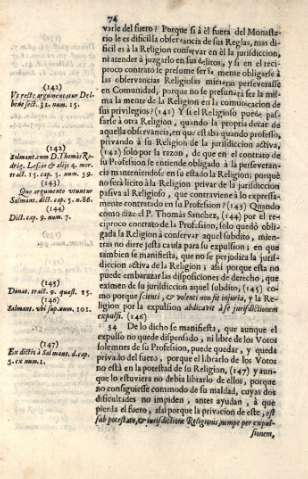 74
varle del fuero? Porque si à el fuera del Monaste-
rio es dificil la observancia de sus Reglas, mas difi-
cil es à la Religion conservar en èl la jurisdiccion,
ni atender à juzgarlo en sus delitos, y si en el reci-
proco contrato le presume ser la mente obligarse à
las observancias Religiosas mientras perseverasse
en Comunidad, porque no se presumirà ser la mis-
ma la mente de la Religion en la comunicacion de
sus privilegios? (142) Y si el Religioso puede pas-
sarse à otra Religion, quando la propria decae de
aquella observancia, en que estaba quando professò,
privando à su Religion de la jurisdiccion activa,
(142) solo por la razon, de que en el contrato de
su Profession se entiende obligado à la perseveran-
cia manteniendose en su estado la Religion; porquè
no serà licito à la Religion privar de la jurisdiccion
passiva al Religioso, que contraviene à lo expressa-
mente contratado en su Profession? (143) Quando
como dize el P. Thomàs Sanchez, (144) por el re-
ciproco contrato de la Profession, solo quedò obli-
gada la Religion à conservar aquel subdito, mientras
no diere justa causa para su expulsion; y en esta
tambien se manifiesta, que no se perjudica la jurisdic-
cion activa de la Religion; assi porque esta no
puede embarazar las disposiciones de derecho, que
eximen de su jurisdiccion aquel subdito, (145) co-
mo porque scienti, & volenti non fit injuria, y la Re-
ligion por la expulsion abdicavit à se jurisdictionem
expulsi. (146)
34 De lo dicho se manifiesta, que aunque el
expulso no quede dispensado, ni libre de los Votos
solemnes de su Profession, puede quedar, y queda
privado del fuero, porque el librarlo de los Votos
no està en la potestad de su Religion, (147) y aun-
que lo estuviera no debia librarlo de ellos, porque
no consiguiesse commodo de su maldad, cuyas dos
dificultades no impiden, antes ayudan, à que
pierda el fuero, assi porque la privacion de este, est
sub potestate, & jurisdictione Religionis, nempe per expul-
sionem,
(142)
Vt recte argumentatur Del-
bene sect. 32. num. 15.
(142)
num. 59.
(143)
Quo argumento utuntur
Salmant. dict. cap. 5. n. 86.
(144)
Dict. cap. 9. num. 7.
(145)
(146)
Salmant. ubi sup. num. 101.
(147)
Ex dictis à Salmant. d. cap.